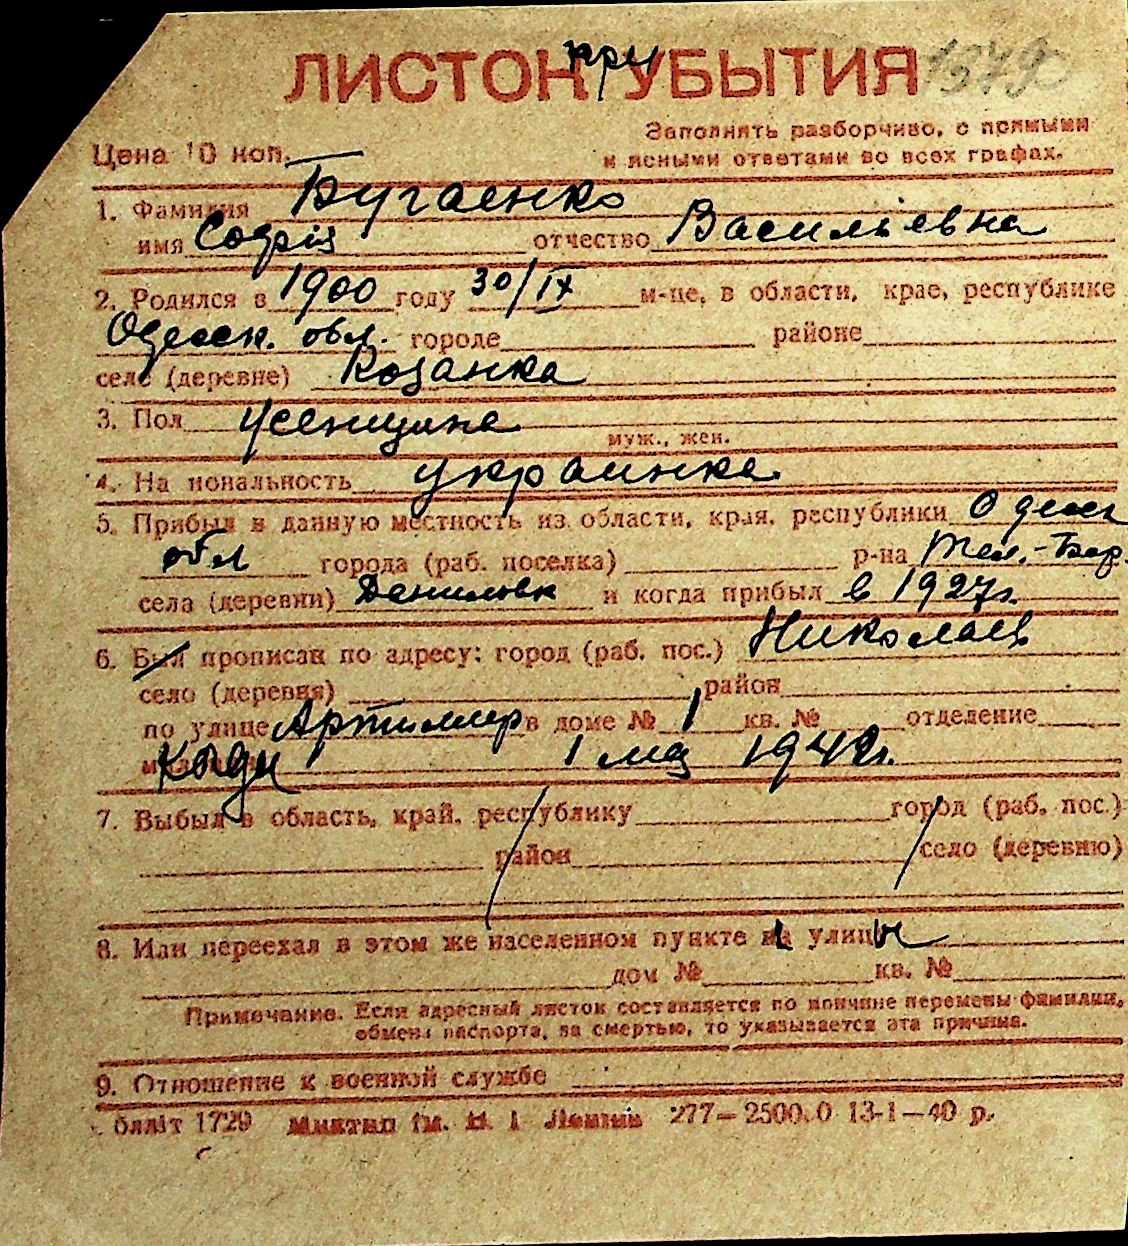 ЛИСТОК при УБЫТИЯ 1379
Заполнять разборчиво, с прямыми
Цена 10 коп. и ясными ответами во всех графах.
1. Фамилия Бугаенко
имя Софія отчество Васильевна
2. Родился в 1900 году 30/IX м-це, в области, крае, республике
Одесск. обл. городе районе
селе (деревне) Козанка
3. Пол женщина
муж., жен.
4. На иональность украинка
5. Прибыл в данную местность из области, края, республики Одесск
обл города (раб. поселка) р-на Тел.-Бер.
села (деревни) Даниловк и когда прибыл в 1927г.
6. Был прописан по адресу: город (раб. пос.) Николаев
село (деревня) район
по улице Артилер в доме № 1 кв. № отделение
когда 1 мая 1942г.
7. Выбыл в область, край, республику город (раб. пос.)
район село (деревню)
8. Или переехал в этом же населенном пункте на улицы
дом № кв. №
Примечание. Если адресный листок составляется по причине перемены фамилии,
обмена паспорта, за смертью, то указывается эта причина.
9. Отношение к военной службе
бліліт 1729 ім. 277—2500.0 13-1—40 р.